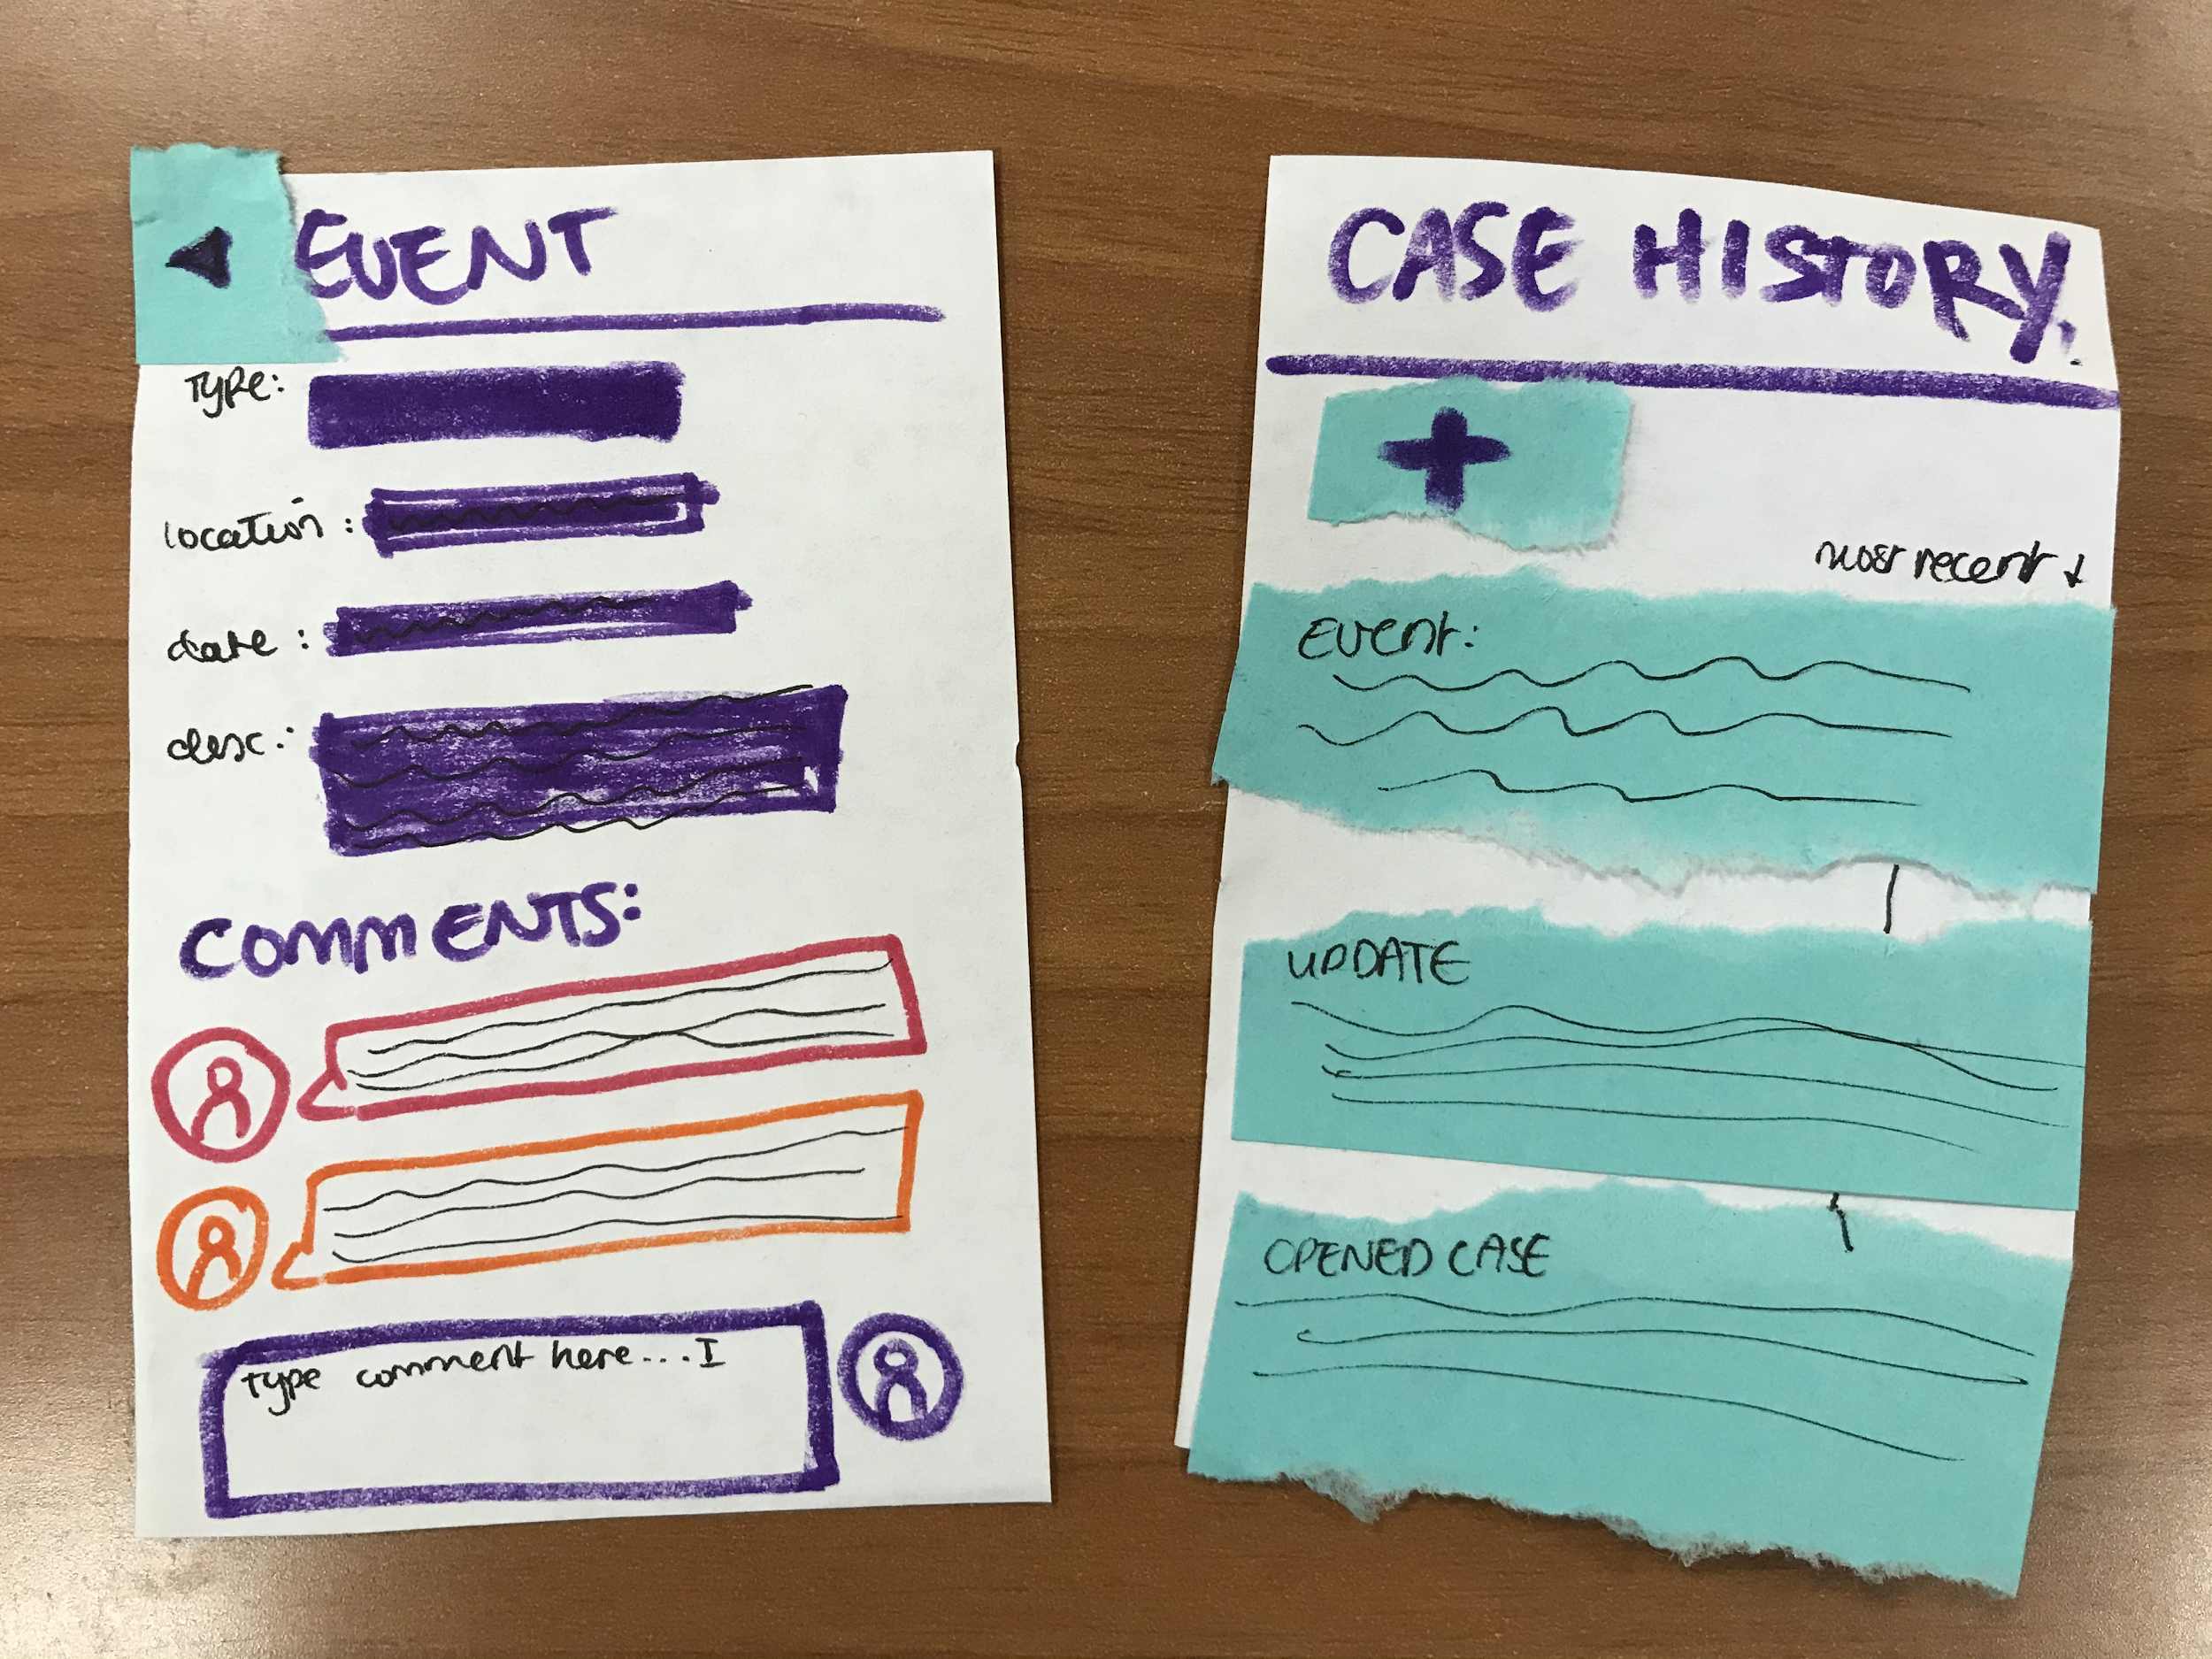 EVENT
Type:
location:
date:
desc.:
COMMENTS:
Type comment here...I
CASE HISTORY.
+
most recent ↓
Event:
UPDATE
OPENED CASE